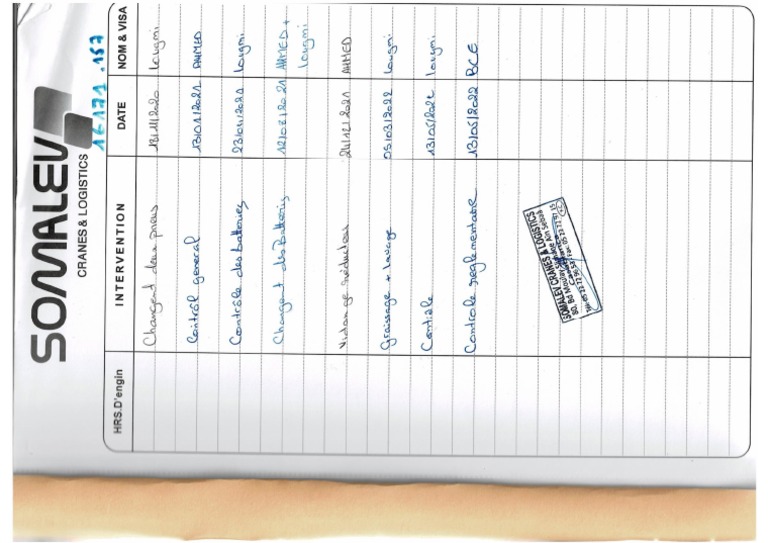 SOMALEV
CRANES & LOGISTICS
16171.157
HRS.D'engin INTERVENTION DATE NOM & VISA
Changent deux pneus 18/11/2020 Lougmi
Contrôl general 13/01/2021 AHMED
Contrôle des batteries 23/01/2021 Lougmi
Changent des Batteris 12/03/2021 AHMED +
Lougmi
Vidange 24/12/2021 AHMED
Graissage + lavage 05/03/2022 Lougmi
13/05/2022 Lougmi
Controle reglementaire 13/05/2022 BCE
SOMALEV CRANES & LOGISTICS